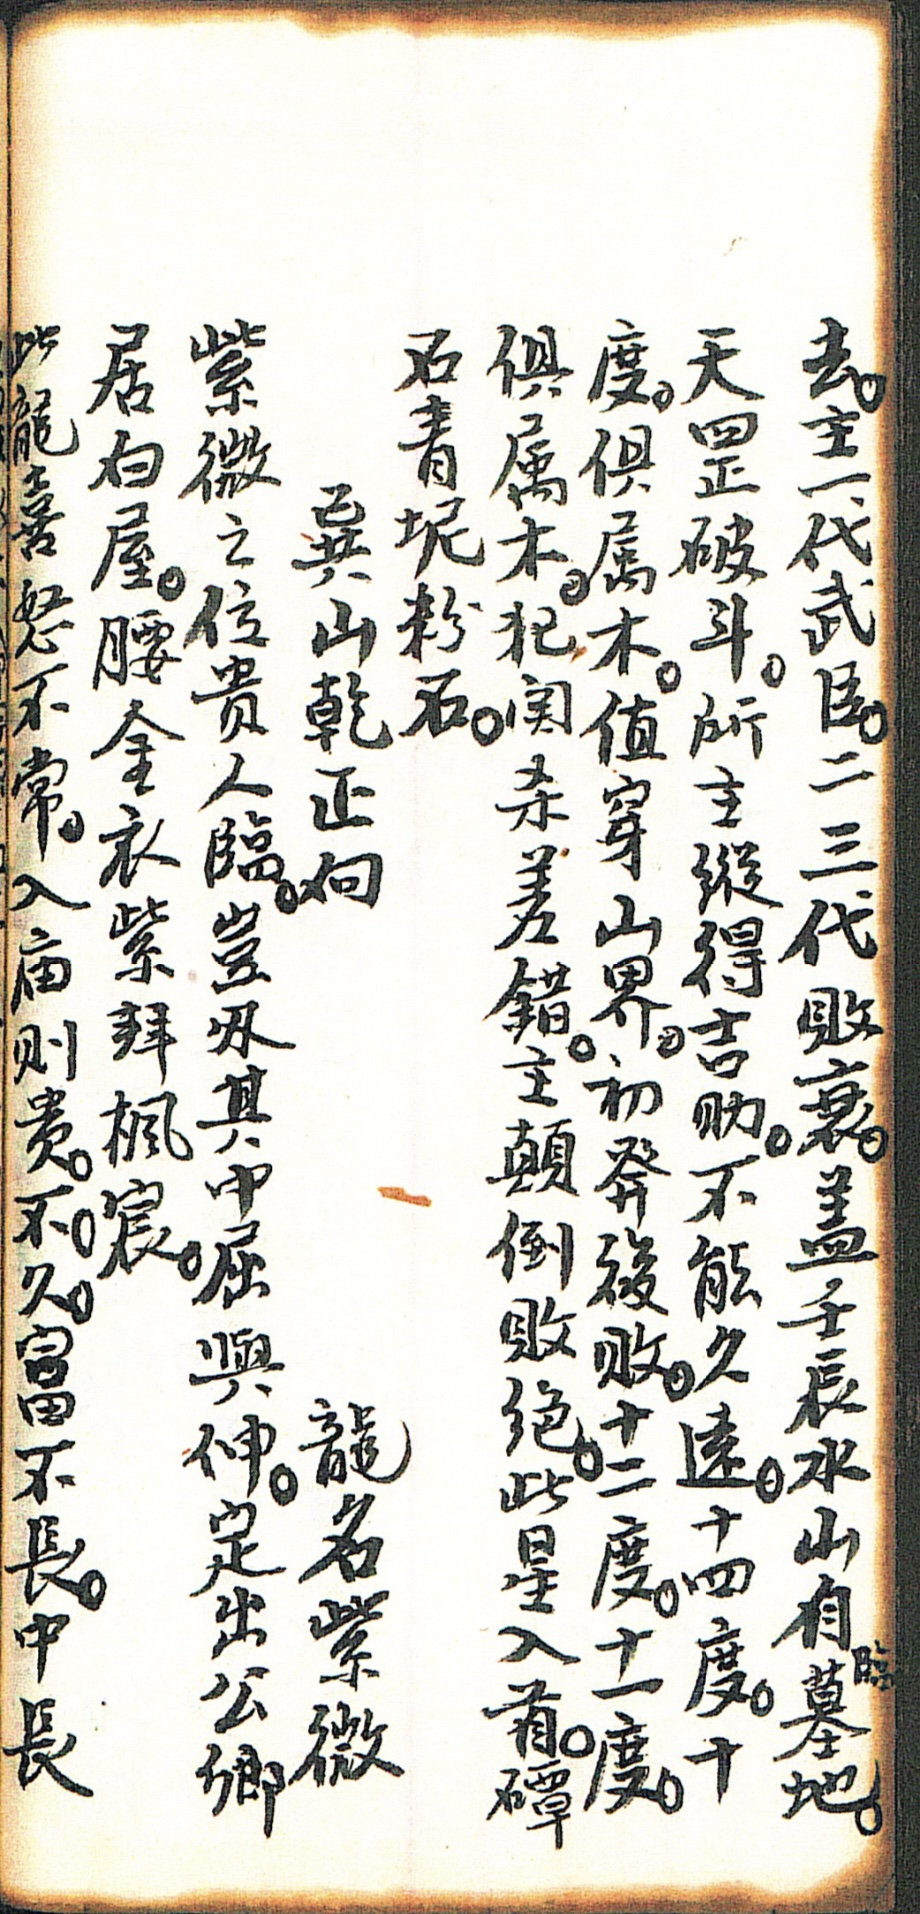 去。主一代武臣。二三代敗衰。盖壬辰水山有臨墓地。
天罡破斗。所主縱得吉助。不能久遠。十四度。十
度。俱属木。值穿山界。初發後敗。十二度。十一度。
俱属木。犯関杀差錯。主顛倒敗绝。此星入首。磹
石青坭粉石。
巽山乾正向 龍名紫微
紫微之位貴人臨。豈忍其中屈與伸。定出公卿
居白屋。腰金衣紫拜楓宸。
此龍喜怒不常。入庙则贵。不久。富不長。中長